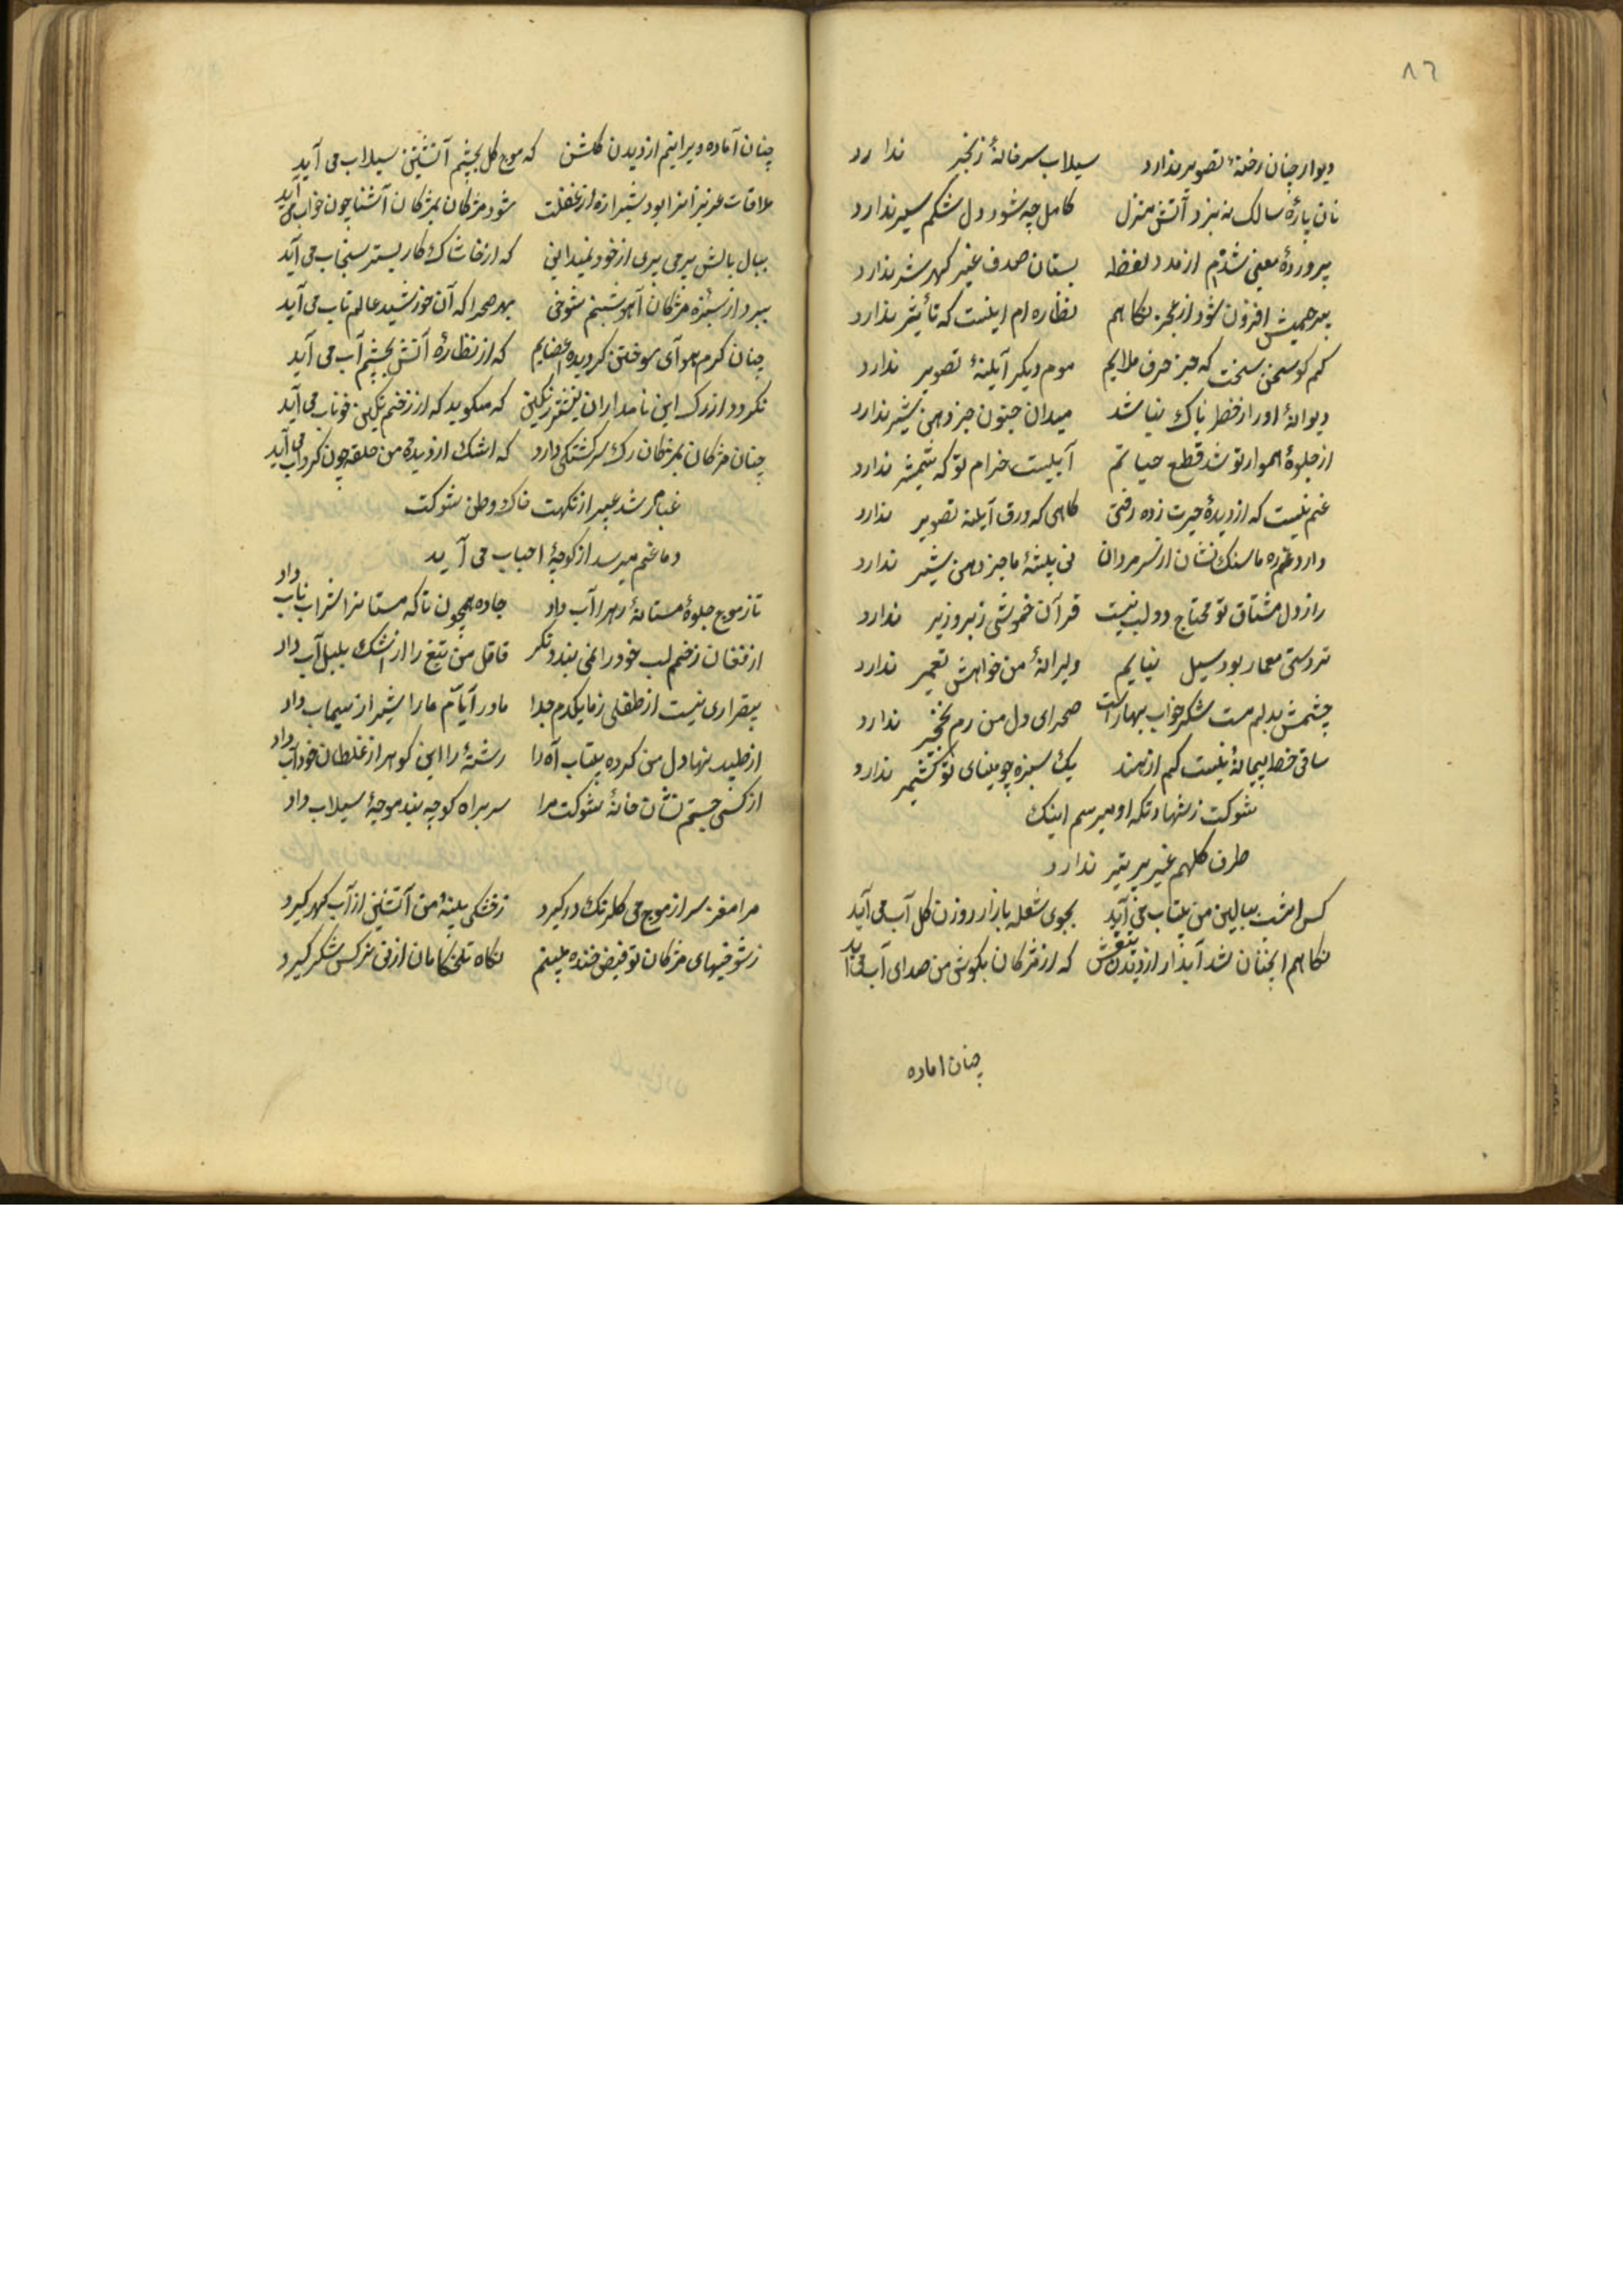 ٨٦
دیوار چنان رخنهٔ تصویر ندارد سیلاب سر خانهٔ زنجیر ندارد
نان پارهٔ سالک نه پزد آتش منزل کامل چه شود دل شکم سیر ندارد
پروردهٔ معنی شدم از مدد لفظ پستان صدف غیر کهر شیر ندارد
بیرحمیش افزون شود از عجز نکاهم نظاره ام اینست که تأثیر ندارد
کم کو سخن سخت که جز حرف ملایم موم دیکر آیینهٔ تصویر ندارد
دیوانهٔ او را ز خطر باک نباشد میدان جنون جز دهن شیر ندارد
از جلوهٔ هموار تو شد قطع حیاتم آبیست خرام تو که شمشیر ندارد
غم نیست که از دیدهٔ حیرت زده رفتی کاهی که ورق آینه تصویر ندارد
دارد غم ره ما سنک نشان از سر مردان نی بیشهٔ ما جز دهن شیر ندارد
راز دل مشتاق تو محتاج دو لب نیست قرآن خموشی زبر و زیر ندارد
تردستی معمار بود سیل بنایم ویرانهٔ من خواهش تعمیر ندارد
چشمش بدلم مست شکر خواب بهار است صحرای دل من رم نخجیر ندارد
ساقی خط پیمانهٔ نیست کم از هند یک سبزه چو مینای تو کشمیر ندارد
شوکت ز شهادتکه او میرسم اینک
طرف کلهم غیر پر تیر ندارد
کس امشب ببالین من بیتاب می آید بجوی شعله بازار روزن کل آب می آید
نکاهم انچنان شد آبدار از دیدن تیغش که از مژکان بکوش من صدای آب می آید
چنان اماده
چنان آماده ویرانیم از دیدن کلشن که موج کل بچشم آتشین سیلاب می آید
ملاقات عزیزانرا بود شیرازه از غفلت شود مژکان بمژکان آشنا چون خواب می آید
ببال بالش پر می پری از خود نمیدانی که از خاشاک کار بستر سنجاب می آید
بپرد از سبزه مژکان آهو شبنم شوخی بهر صحرا که آن خورشید عالم تاب می آید
چنان کرم هوای سوختن کردیده اعضایم که از نظارهٔ آتش بچشم آب می آید
نکردد از رک این نامداران نیشتر رنکین که میکوید که از زخم نکین خوناب می آید
چنان مژکان بمژکان رک سرکشتکی دارد که اشک از دیدهٔ من حلقه چون کرداب می آید
غبارم شد عبیر از نکهت خاک وطن شوکت
دماغم میرسد از کوچهٔ احباب می آید
تا ز موج جلوهٔ مستانهٔ رهرا آب داد جاده همچون تاکه مستانرا شراب ناب داد
از فغان زخمم لب خود را نمی بندد مکر قاتل من تیغ را از اشک بلبل آب داد
بیقراری نیست از طفلی ز ما یکدم جدا مادر ایام ما را شیر از سیماب داد
از طپیدنها دل من کرده بیتاب آه را رشتهٔ را این کوهر از غلطان خود آب داد
از کسی جستم نشان خانهٔ شوکت مرا سر براه کوچه بند موجهٔ سیلاب داد
مرا مغز سر از موج می کلرنک درکیرد ز خشکی پنبهٔ من آتشین از آب کهر کیرد
ز شوخیهای مژکان تو فیض خنده میبینم نکاه تلخکامان از نی نرکس شکر کیرد